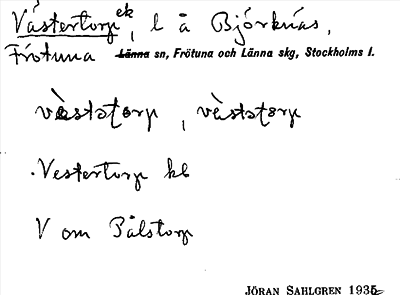 Västertorp ek, l å Björknäs,
Frötuna Länna sn, Frötuna och Länna skg, Stockholms l.
vä̀ststɷrp, vä̀ststɷrp
Vestertorp kb
V om Pålstorp
JÖRAN SAHLGREN 1935